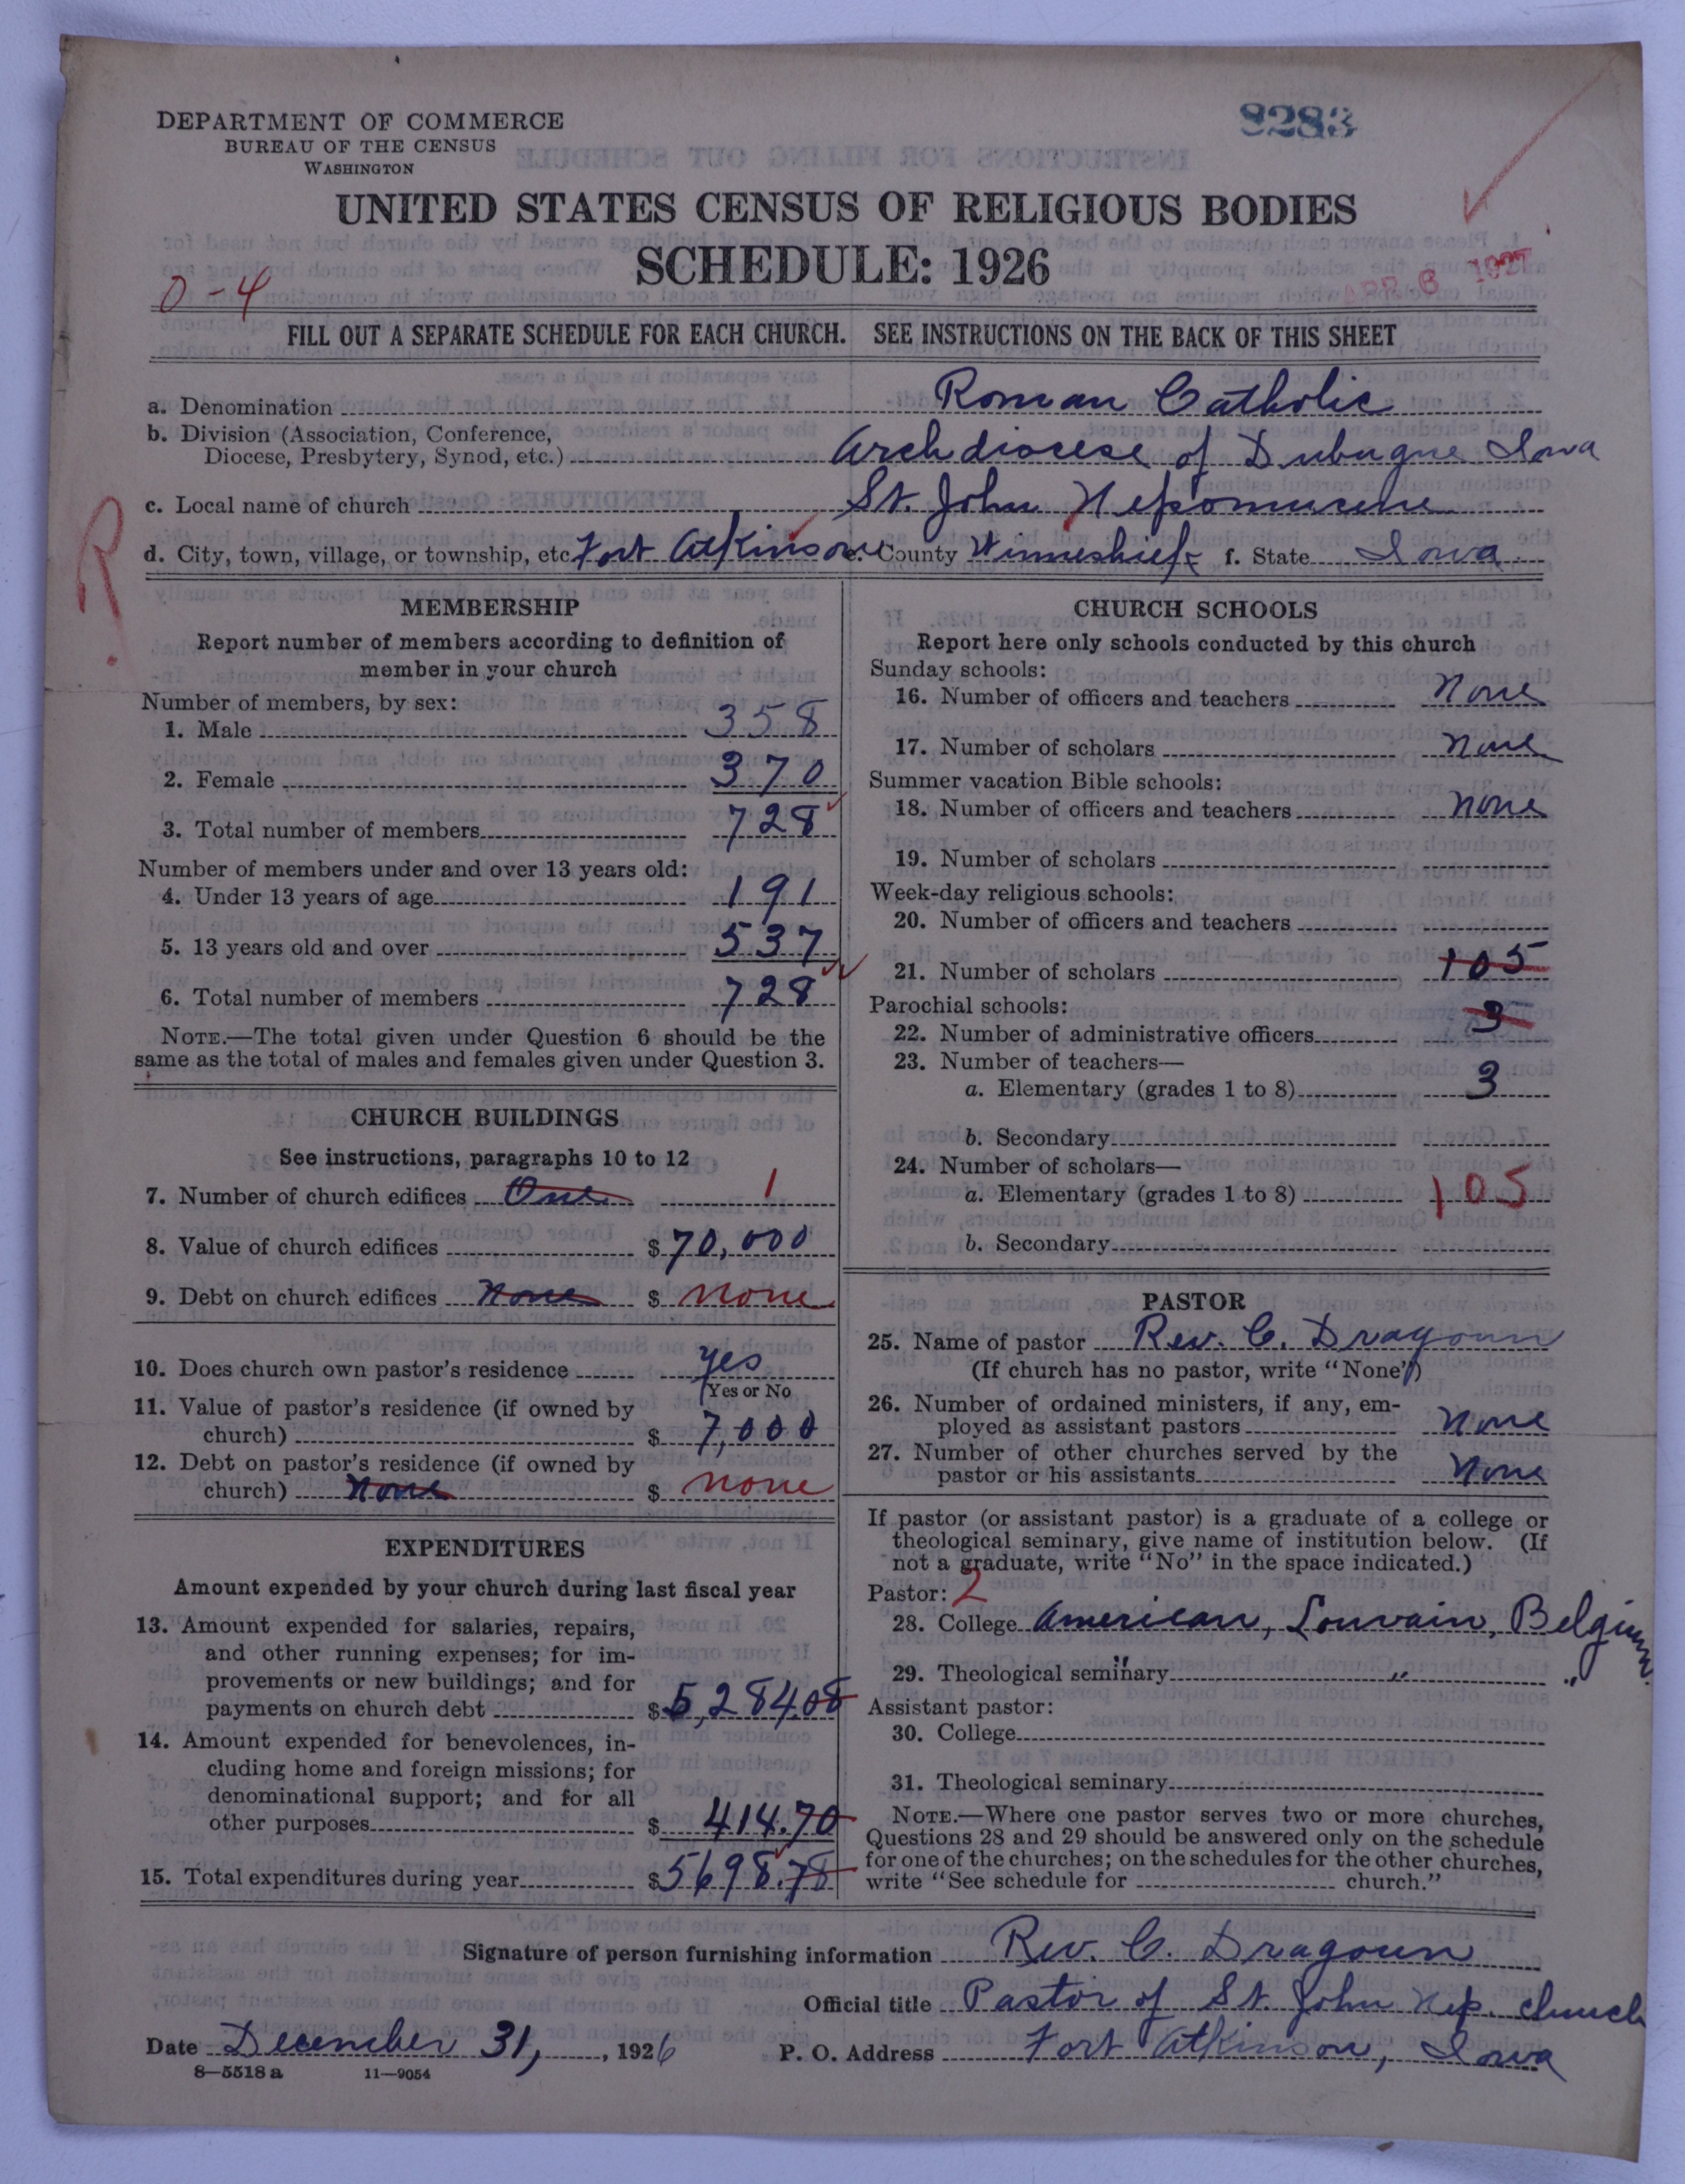 DEPARTMENT OF COMMERCE
BUREAU OF THE CENSUS
WASHINGTON
8283
UNITED STATES CENSUS OF RELIGIOUS BODIES
SCHEDULE: 1926
0-4
APR 6 1927
FILL OUT A SEPARATE SCHEDULE FOR EACH CHURCH. SEE INSTRUCTIONS ON THE BACK OF THIS SHEET
a. Denomination Roman Catholic
b. Division (Association, Conference,
Diocese, Presbytery, Synod, etc.) Archdiocese of Dubuque Iowa
c. Local name of church St. John Nepomucene
R
d. City, town, village, or township, etc. Fort Atkinson e. County Winneshiek f. State Iowa
MEMBERSHIP
Report number of members according to definition of
member in your church
Number of members, by sex:
1. Male 358
2. Female 370
3. Total number of members 728
Number of members under and over 13 years old:
4. Under 13 years of age 191
5. 13 years old and over 537
6. Total number of members 728
NOTE.—The total given under Question 6 should be the
same as the total of males and females given under Question 3.
CHURCH BUILDINGS
See instructions, paragraphs 10 to 12
7. Number of church edifices One 1
8. Value of church edifices $70,000
9. Debt on church edifices None $ none
10. Does church own pastor's residence yes
(Yes or No
11. Value of pastor's residence (if owned by
church) $ 7,000
12. Debt on pastor's residence (if owned by
church) None $ none
EXPENDITURES
Amount expended by your church during last fiscal year
13. Amount expended for salaries, repairs,
and other running expenses; for im-
provements or new buildings; and for
payments on church debt $5,284.08
14. Amount expended for benevolences, in-
cluding home and foreign missions; for
denominational support; and for all
other purposes $ 414.70
15. Total expenditures during year $5698.78
CHURCH SCHOOLS
Report here only schools conducted by this church
Sunday schools:
16. Number of officers and teachers none
17. Number of scholars none
Summer vacation Bible schools:
18. Number of officers and teachers none
19. Number of scholars
Week-day religious schools:
20. Number of officers and teachers
21. Number of scholars 105
Parochial schools:
22. Number of administrative officers 3
23. Number of teachers—
a. Elementary (grades 1 to 8) 3
b. Secondary
24. Number of scholars—
a. Elementary (grades 1 to 8) 105
b. Secondary
PASTOR
25. Name of pastor Rev. C. Dragoun
(If church has no pastor, write "None")
26. Number of ordained ministers, if any, em-
ployed as assistant pastors none
27. Number of other churches served by the
pastor or his assistants none
If pastor (or assistant pastor) is a graduate of a college or
theological seminary, give name of institution below. (If
not a graduate, write "No" in the space indicated.)
Pastor: 2
28. College American, Louvain, Belgium.
29. Theological seminary " " "
Assistant pastor:
30. College
31. Theological seminary
NOTE.—Where one pastor serves two or more churches,
Questions 28 and 29 should be answered only on the schedule
for one of the churches; on the schedules for the other churches,
write "See schedule for church."
Signature of person furnishing information Rev. C. Dragoun
Official title Pastor of St. John Nep. church
Date December 31, 1926 P. O. Address Fort Atkinson, Iowa
8—5518 a 11—9054